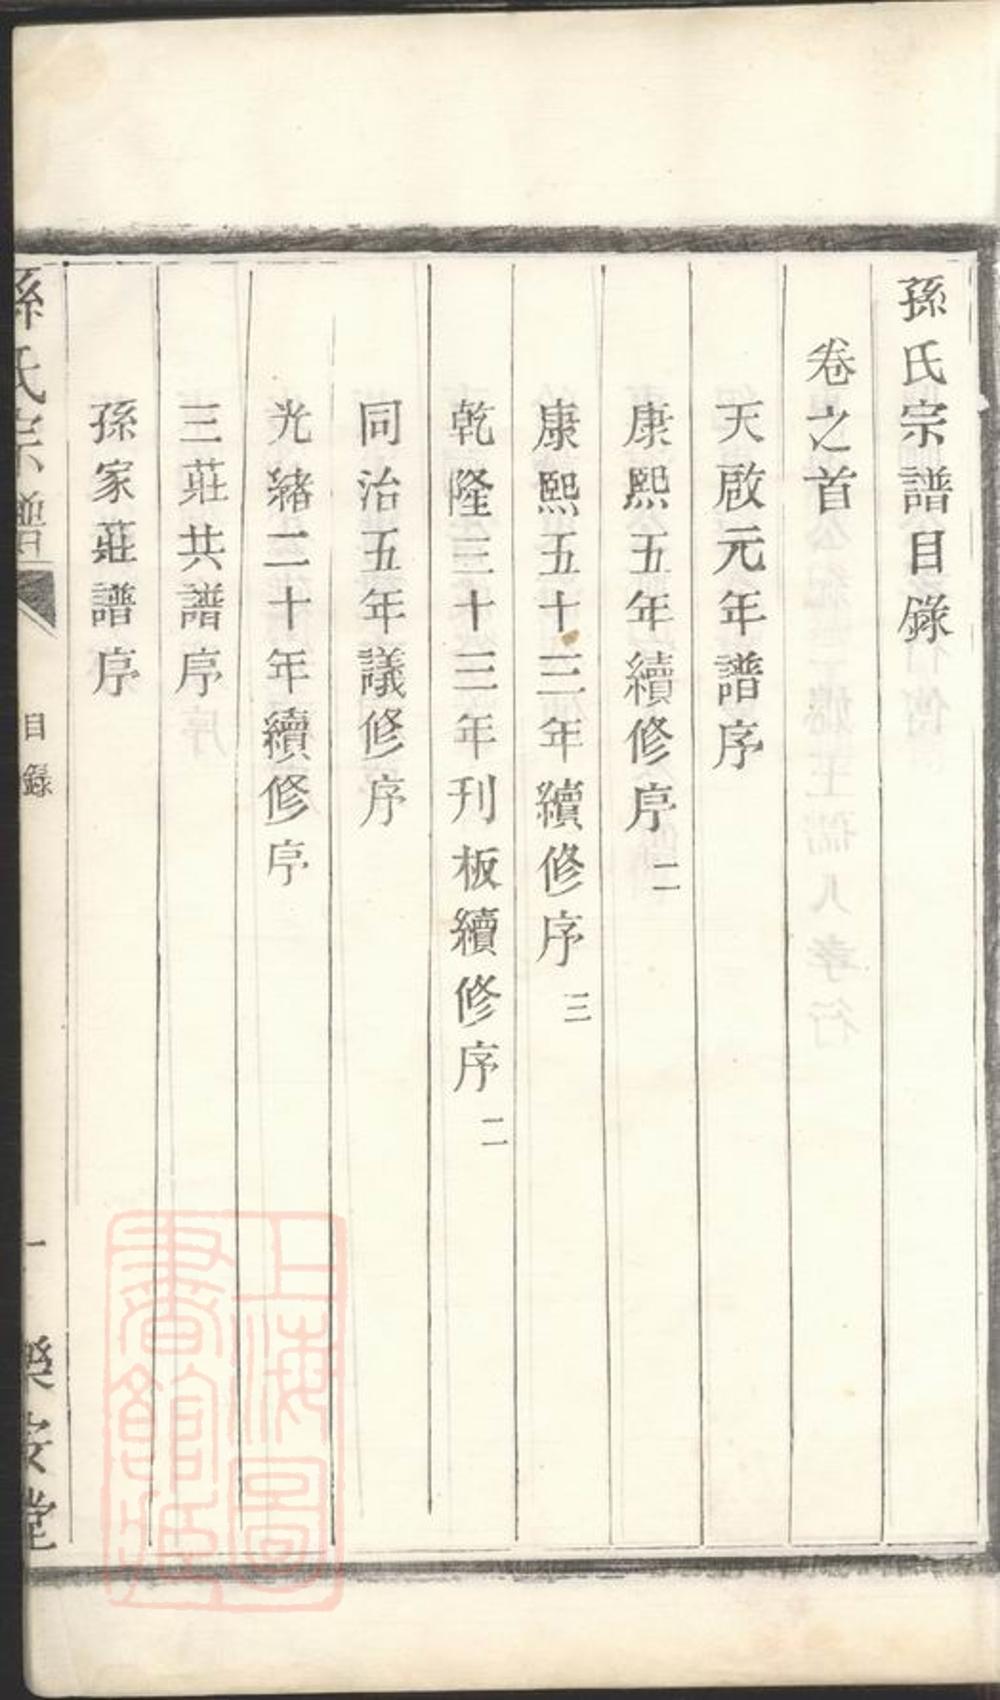 孫氏宗譜目錄
卷之首
天啟元年譜序
康熙五年續修序二
康熙五十三年續修序三
乾隆三十三年刊板續修序二
同治五年議修序
光緒二十年續修序
三莊共譜序
孫家莊譜序
孫氏宗譜
目錄
一
樂安堂
上海圖書館藏